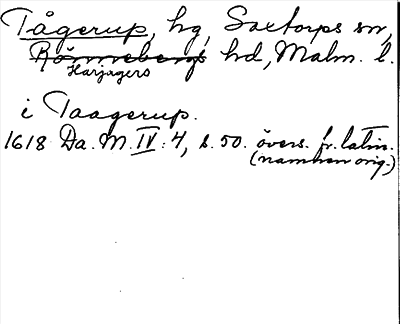 Tågerup, hg, Saxtorps sn,
Rönnebergs hd, Malm. l.
Harjagers
i Taagerup.
1618 Da. M. IV: 4, s. 50. övers. fr. latin.
(namnen orig.)